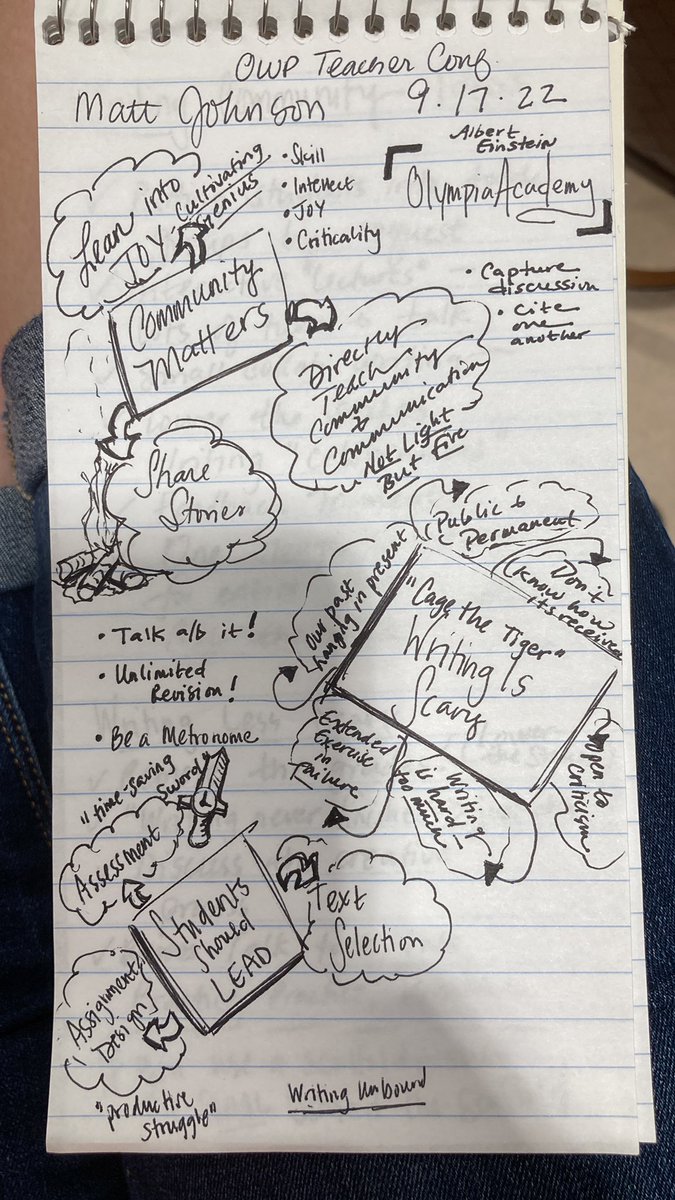 OWP Teacher Conf
Matt Johnson
9.17.22
Lean into
JOY
Cultivating
Genius
• Skill
• Intellect
• JOY
• Criticality
Albert
Einstein
Olympia Academy
• Capture
discussion
• Cite
one
another
Community
Matters
Directly
Teach
Community
&
Communication
Not Light
But Fire
Share
Stories
Public &
Permanent
Don't
know how
its received
Our past
hanging in present
"Cage the Tiger"
Writing Is
Scary
• Talk a/b it!
• Unlimited
Revision!
• Be a Metronome
Extended
Exercise
in
failure
Writing
is hard-
too much
open to
criticism
"time-saving
Sword"
Assessment
Students
Should
LEAD
Text
Selection
Assignment
Design
"productive
struggle"
Writing Unbound